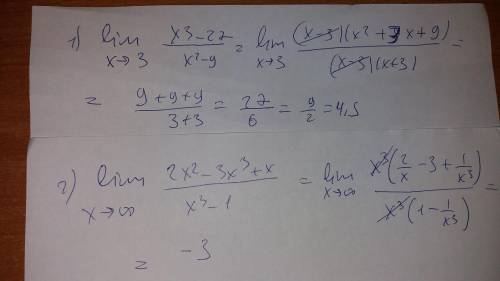 1) lim x→3 x3-27 / x²-9 = lim x→3 (x-3)(x²+3x+9) / (x-3)(x+3) =
= 9+9+9 / 3+3 = 27/6 = 9/2 = 4,5
2) lim x→∞ 2x²-3x³+x / x³-1 = lim x→∞ x³(2/x -3+ 1/x³) / x³(1- 1/x³) =
= -3